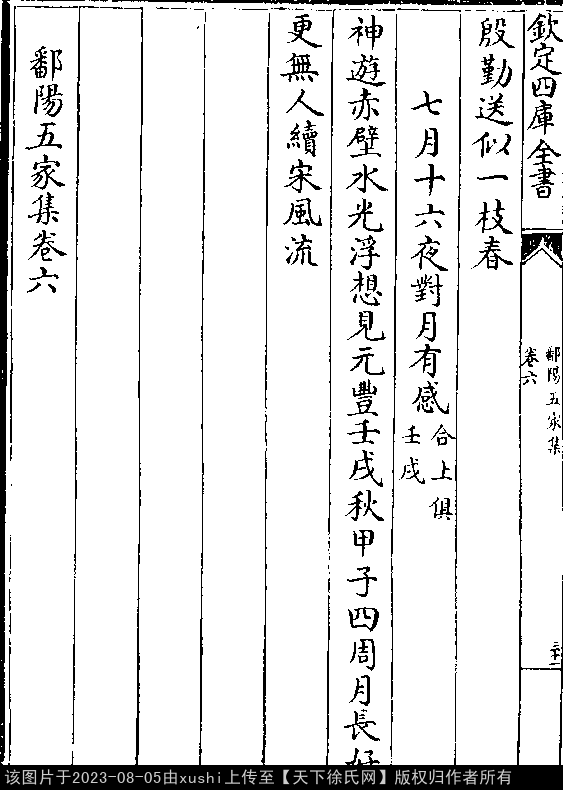 欽定四庫全書
鄱陽五家集
卷六
殷勤送似一枝春
七月十六夜對月有感合上俱壬戌
神遊赤壁水光浮想見元豐壬戌秋甲子四周月長好
更無人續宋風流
鄱陽五家集卷六
该图片于2023-08-05由xushi上传至【天下徐氏网】版权归作者所有